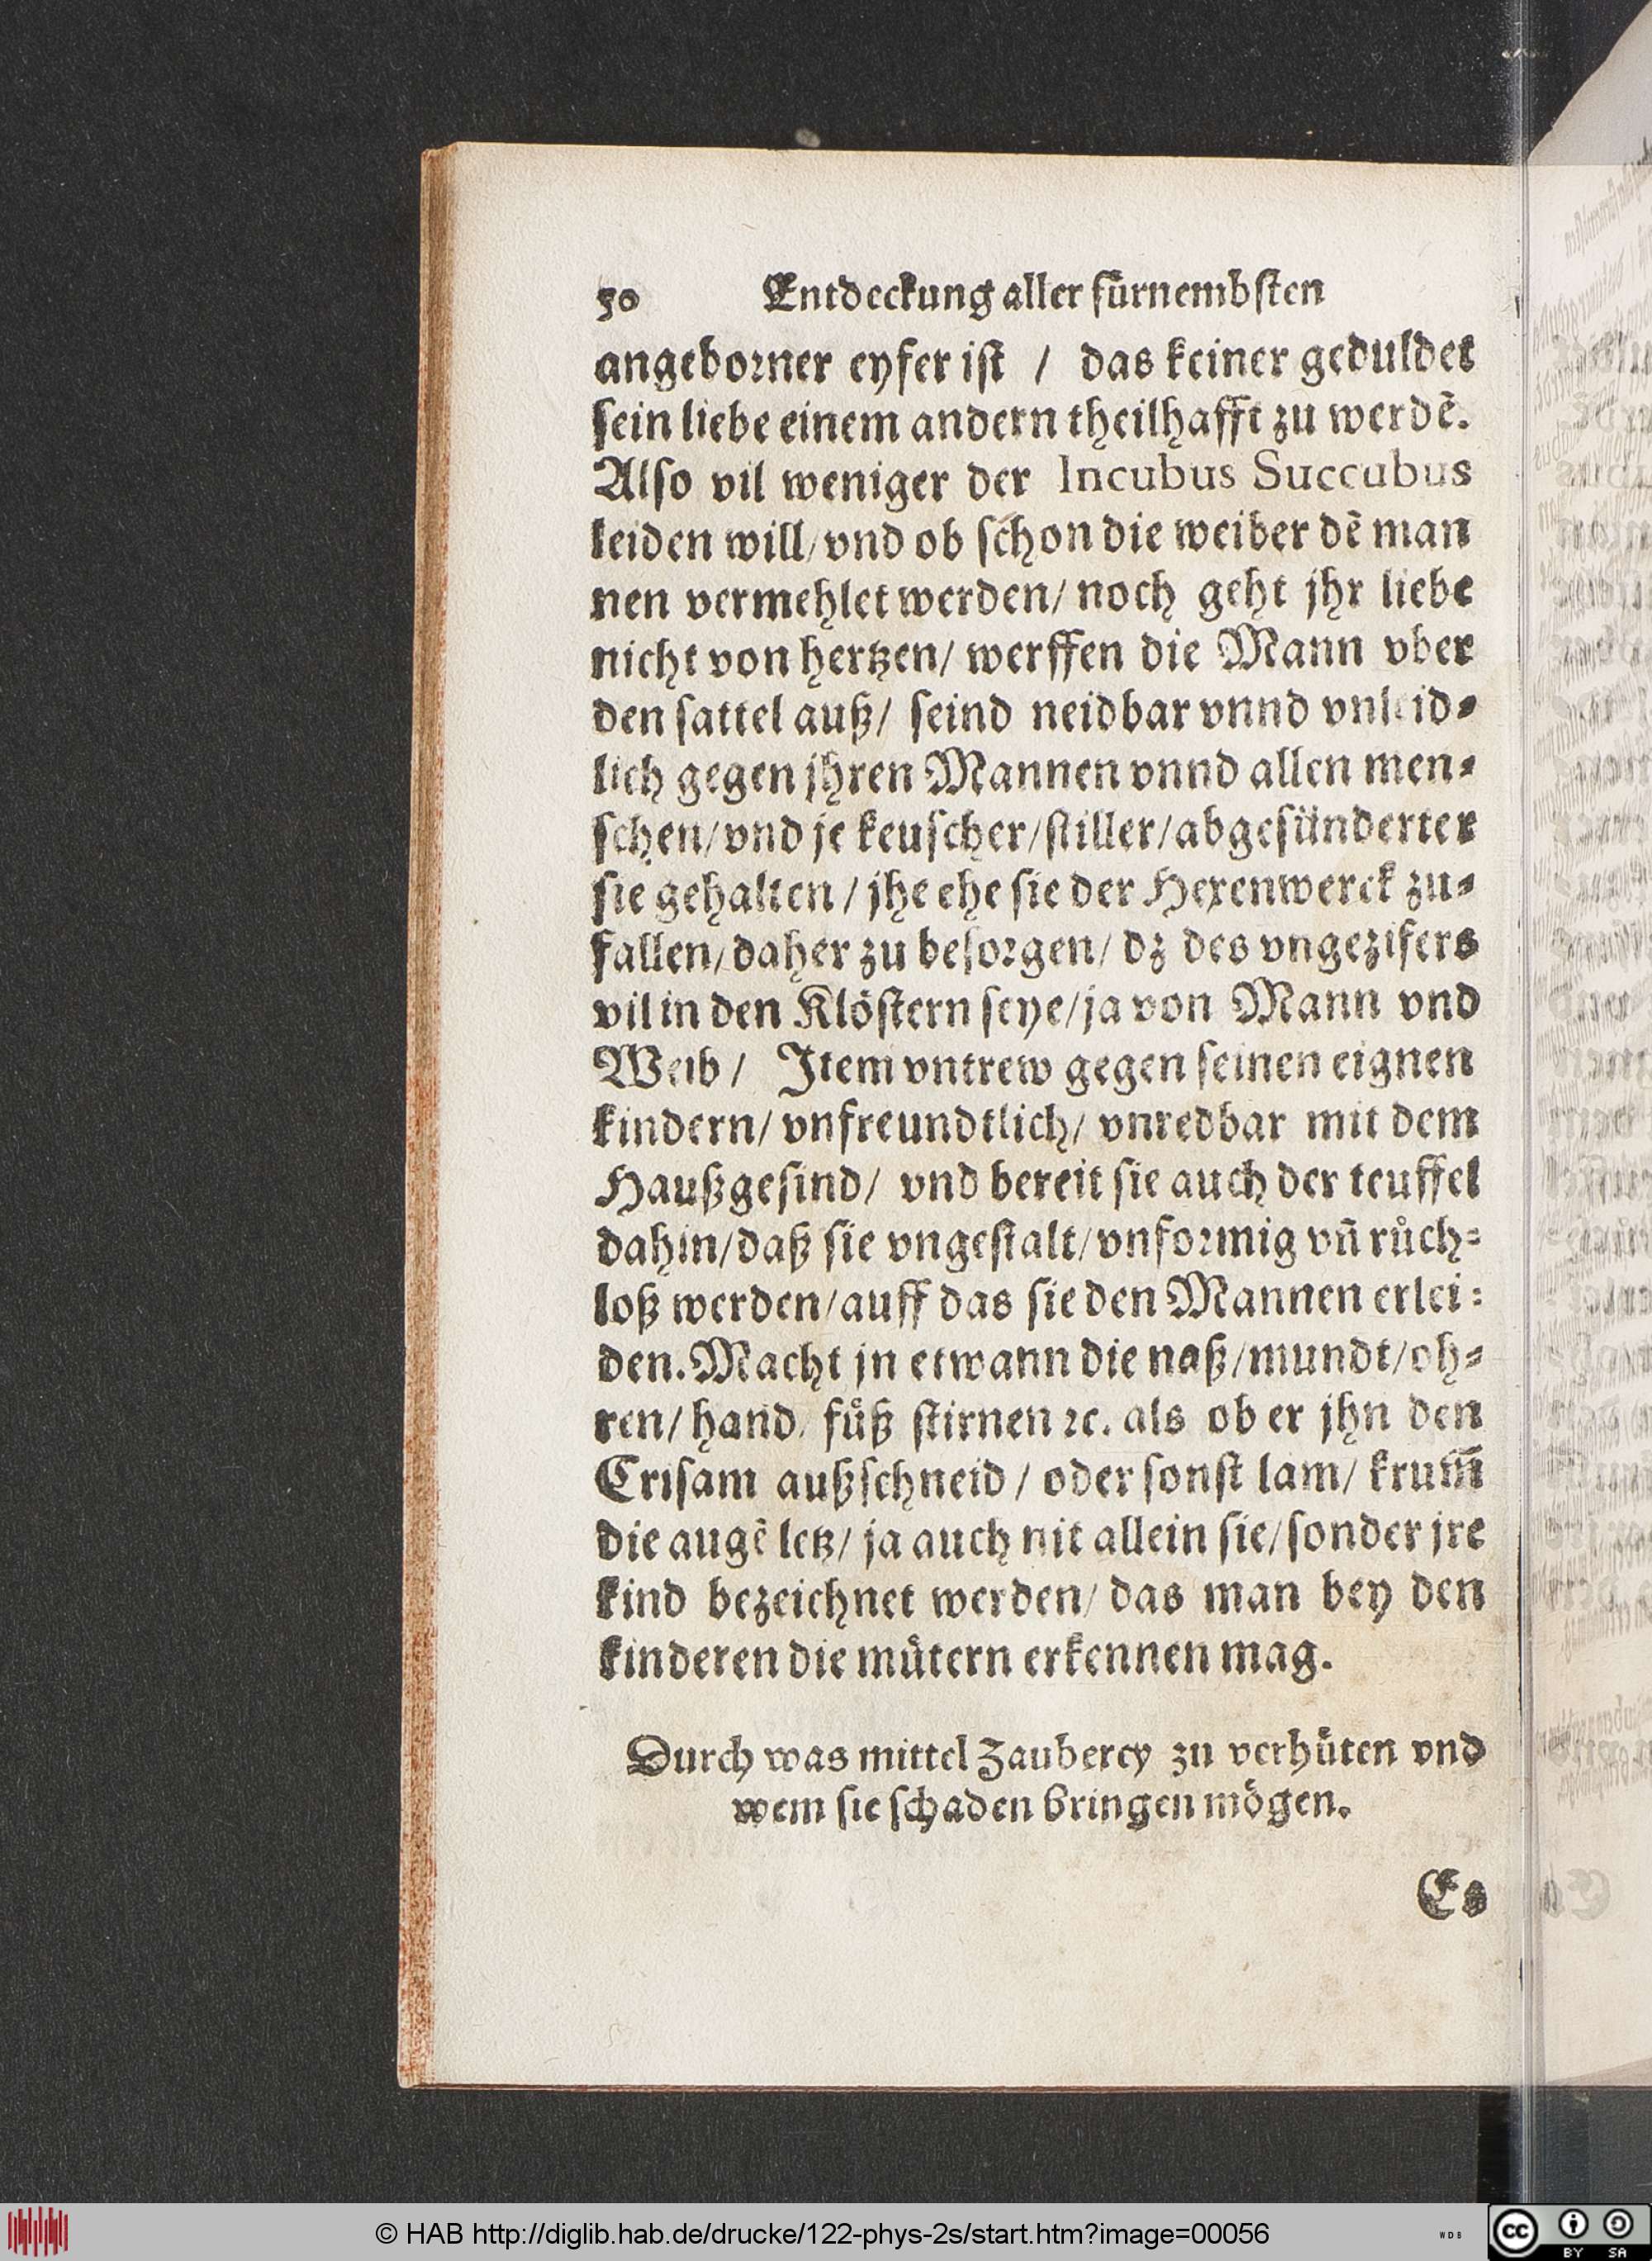 50 Entdeckung aller fürnembsten
angeborner eyfer ist / das keiner geduldet
sein liebe einem andern theilhafft zu werdẽ.
Also vil weniger der Incubus Succubus
leiden will/ vnd ob schon die weiber dẽ man
nen vermehlet werden/ noch geht jhr liebe
nicht von hertzen/ werffen die Mann vber
den sattel auß/ seind neidbar vnnd vnleid⸗
lich gegen jhren Mannen vnnd allen men⸗
schen/ vnd je keuscher/ stiller/ abgesünderter
sie gehalten / jhe ehe sie der Hexenwerck zu⸗
fallen/ daher zu besorgen/ dz des vngezifers
vil in den Klöstern seye/ ja von Mann vnd
Weib / Item vntrew gegen seinen eignen
kindern/ vnfreundtlich/ vnredbar mit dem
Haußgesind/ vnd bereit sie auch der teuffel
dahin/ daß sie vngestalt/ vnformig vñ růch⸗
loß werden/ auff das sie den Mannen erlei⸗
den. Macht jn etwann die naß/ mundt/ oh⸗
ren/ hand/ füß stirnen ꝛc. als ob er jhn den
Crisam außschneid / oder sonst lam/ krum̃
die augẽ letz/ ja auch nit allein sie/ sonder jre
kind bezeichnet werden/ das man bey den
kinderen die mütern erkennen mag.
Durch was mittel Zauberey zu verhüten vnd
wem sie schaden bringen mögen.
Es
© HAB http://diglib.hab.de/drucke/122-phys-2s/start.htm?image=00056
WDB
cc
BY SA